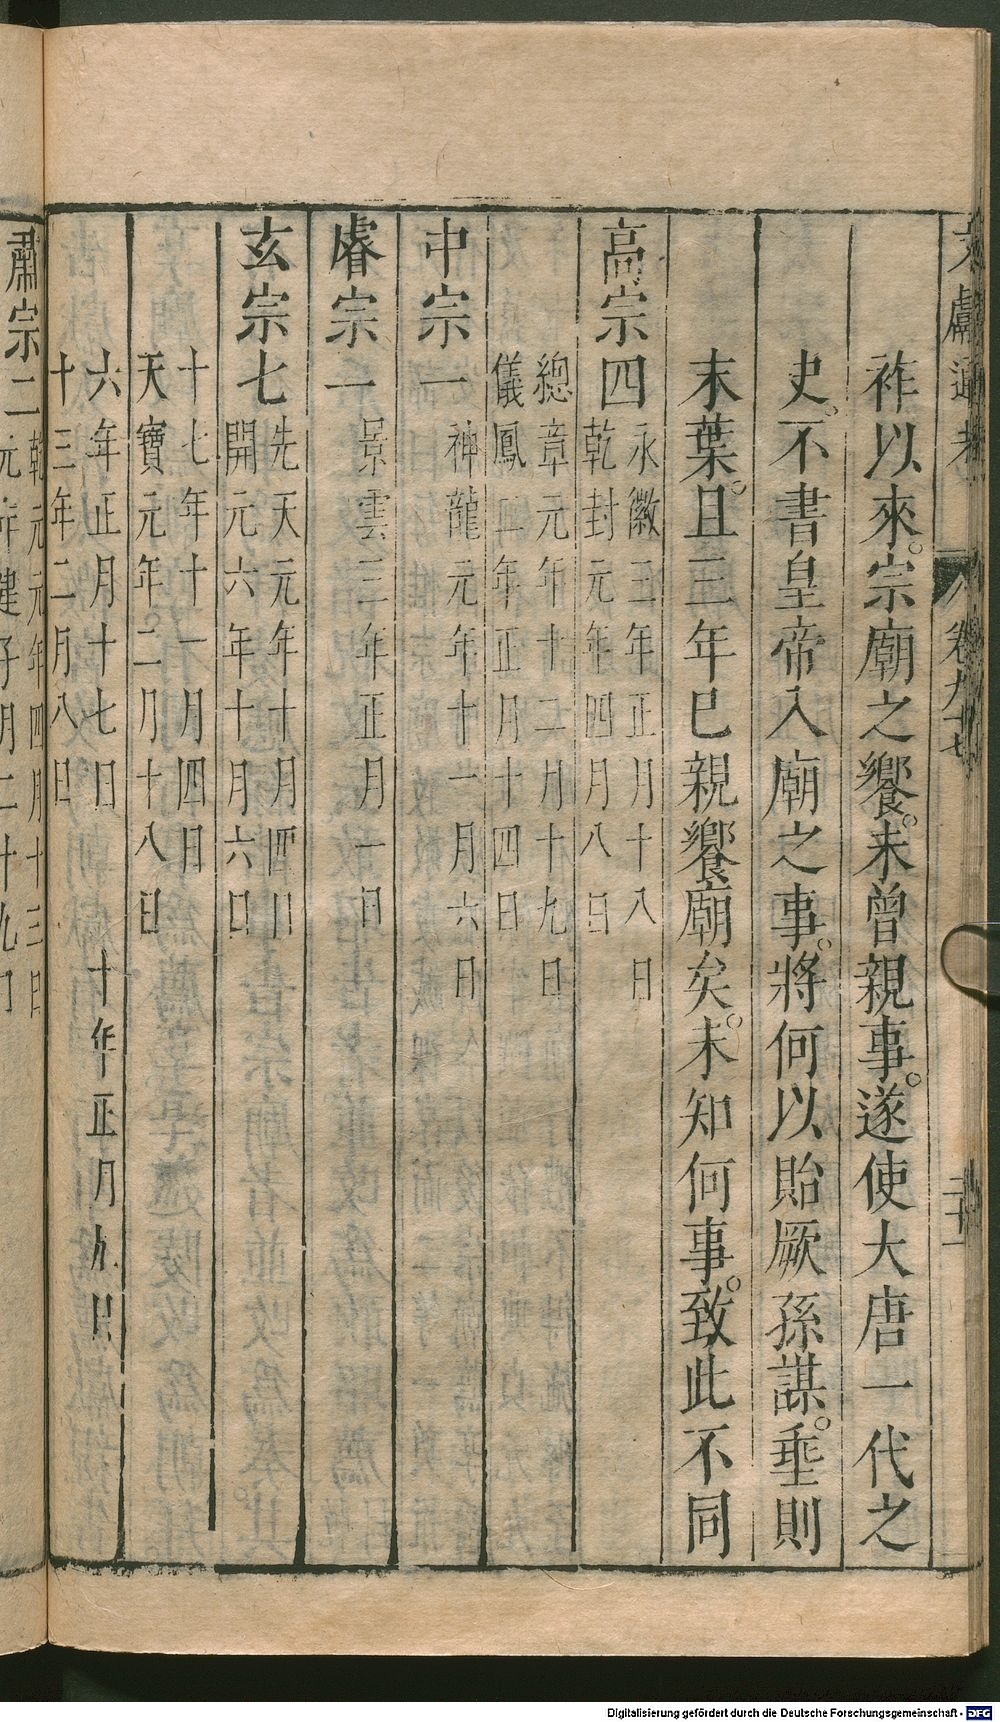 文獻通考 卷九十七 二十一
祚以來。宗廟之饗。未曾親事。遂使大唐一代之
史。不書皇帝入廟之事。將何以貽厥孫謀。垂則
末葉。且三年已親饗廟矣。未知何事。致此不同
高宗四
永徽三年正月十八日
乾封元年四月八日
總章元年十二月十九日
儀鳳二年正月十四日
中宗一
神龍元年十一月六日
睿宗一
景雲三年正月一日
玄宗七
先天元年十月四日
開元六年十月六日
十七年十一月四日
天寶元年二月十八日
六年正月十七日 十年正月九日
十三年二月八日
肅宗二
乾元元年四月十三日
元年建子月二十九日
Digitalisierung gefördert durch die Deutsche Forschungsgemeinschaft - DFG